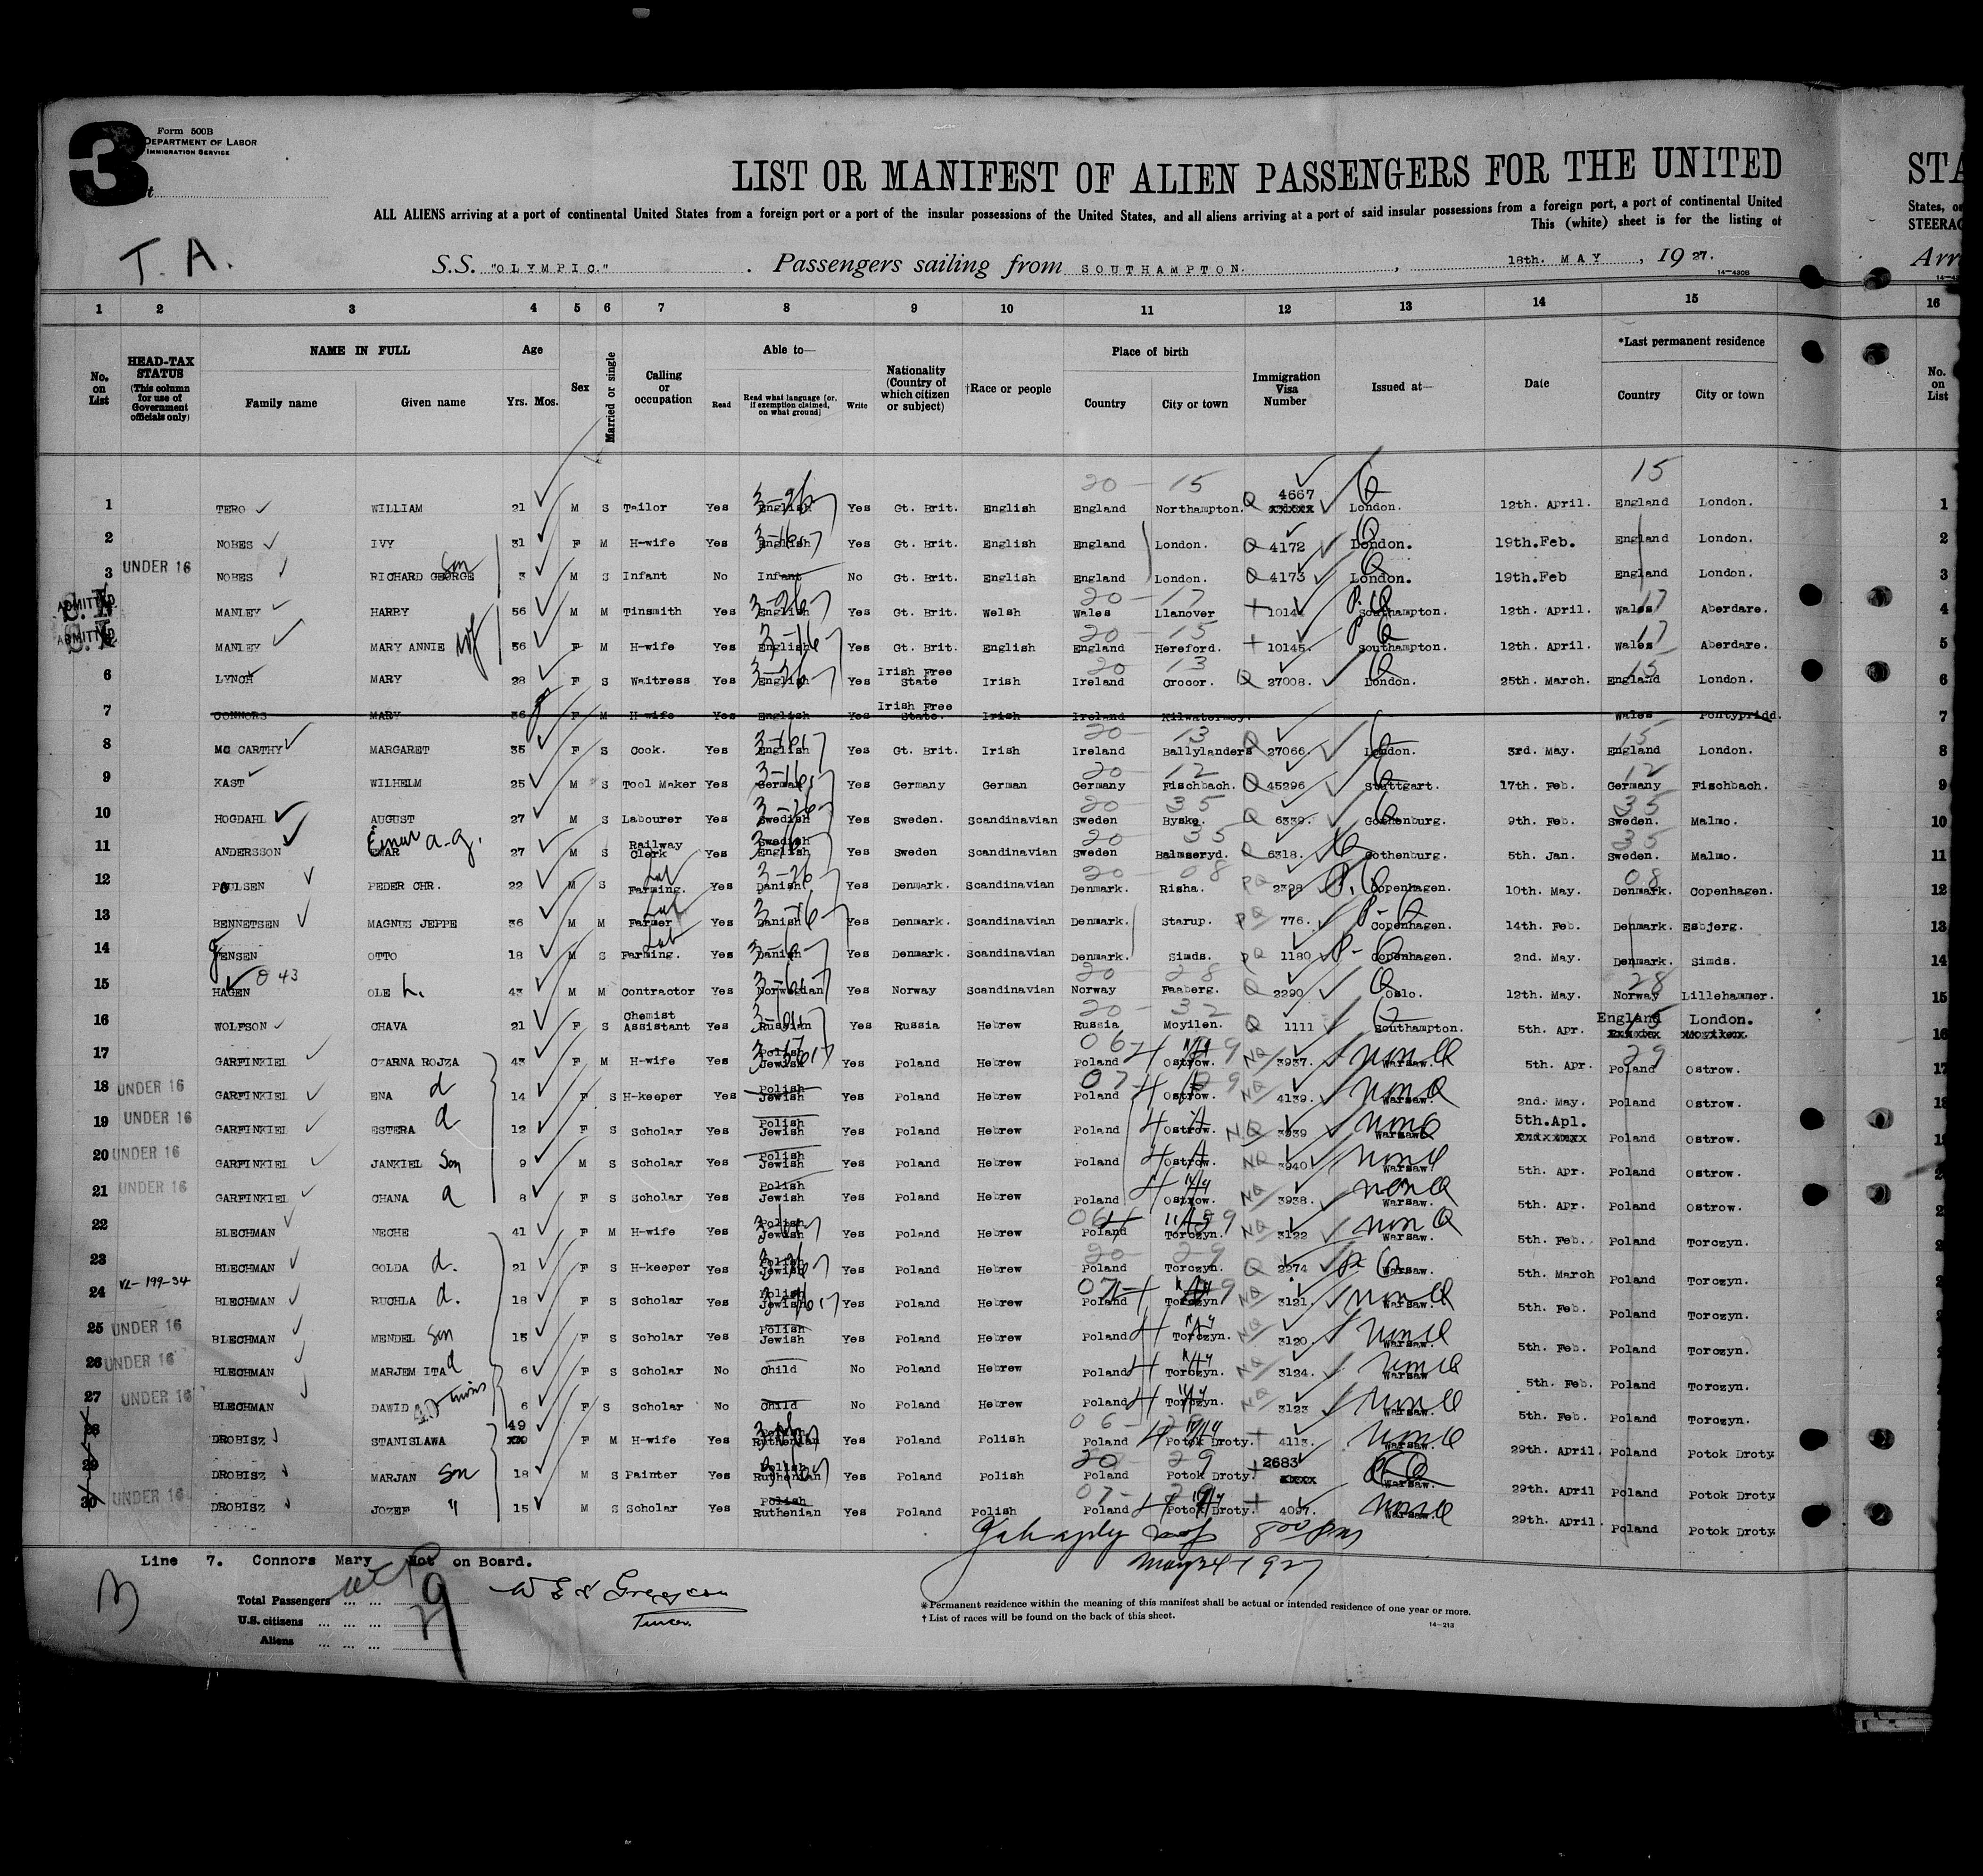 3
Form 500B
DEPARTMENT OF LABOR
IMMIGRATION SERVICE
LIST OR MANIFEST OF ALIEN PASSENGERS FOR THE UNITED
STA
ALL ALIENS arriving at a port of continental United States from a foreign port or a port of the insular possessions of the United States, and all aliens arriving at a port of said insular possessions from a foreign port, a port of continental United
States, or
This (white) sheet is for the listing of
STEERAG
T. A.
S.S. "OLYMPIC." Passengers sailing from SOUTHAMPTON. , 18th. MAY , 19 27.
Arr
14-430B
1 2 3 4 5 6 7 8 9 10 11 12 13 14 15 16
No. on List
HEAD-TAX STATUS (This column for use of Government officials only)
NAME IN FULL Family name Given name
Age Yrs. Mos.
Sex
Married or single
Calling or occupation
Able to— Read Read what language [or, if exemption claimed, on what ground] Write
Nationality (Country of which citizen or subject)
†Race or people
Place of birth Country City or town
Immigration Visa Number
Issued at—
Date
*Last permanent residence Country City or town
No. on List
20 - 15 15
1 TERO WILLIAM 21 M S Tailor Yes English Yes Gt. Brit. English England Northampton. Q 4667 London. 12th. April. England London. 1
2 NOBES IVY 31 F M H-wife Yes English Yes Gt. Brit. English England London. Q 4172 London. 19th.Feb. England London. 2
3 UNDER 16 NOBES RICHARD GEORGE Son 3 M S Infant No Infant No Gt. Brit. English England London. Q 4173 London. 19th.Feb England London. 3
4 ADMITTED MANLEY HARRY 56 M M Tinsmith Yes English Yes Gt. Brit. Welsh Wales Llanover Southampton. 12th. April. Wales Aberdare. 4
5 ADMITTED MANLEY MARY ANNIE wf 56 F M H-wife Yes English Yes Gt. Brit. English England Hereford. 10145. Southampton. 12th. April. Wales Aberdare. 5
6 LYNCH MARY 28 F S Waitress Yes English Yes Irish Free State Irish Ireland Crocor. Q 27008. London. 25th. March. England London. 6
7 CONNORS MARY 36 F M H-wife Yes English Yes Irish Free State. Irish Ireland Kilwatermoy. Wales Pontypridd. 7
8 MC CARTHY MARGARET 35 F S Cook. Yes English Yes Gt. Brit. Irish Ireland Ballylanders 27066. London. 3rd. May. England London. 8
9 KAST WILHELM 25 M S Tool Maker Yes German Yes Germany German Germany Fischbach. Q 45296 Stuttgart. 17th. Feb. Germany Fischbach. 9
10 HOGDAHL AUGUST 27 M S Labourer Yes Swedish Yes Sweden. Scandinavian Sweden Byske. Q 6339. Gothenburg. 9th. Feb. Sweden. Malmo. 10
11 ANDERSSON Einar a-g. 27 M S Railway Clerk Yes Swedish English Yes Sweden Scandinavian Sweden Balmseryd. Q 6318. Gothenburg. 5th. Jan. Sweden. Malmo. 11
12 POULSEN PEDER CHR. 22 M S Farming. Yes Danish Yes Denmark. Scandinavian Denmark. Risha. PQ 2398 Copenhagen. 10th. May. Denmark. Copenhagen. 12
13 BENNETSEN MAGNUS JEPPE 36 M M Farmer Yes Danish Yes Denmark. Scandinavian Denmark. Starup. PQ 776. Copenhagen. 14th. Feb. Denmark. Esbjerg. 13
14 JENSEN OTTO 18 M S Farming. Yes Danish Yes Denmark. Scandinavian Denmark. Simds. PQ 1180 Copenhagen. 2nd. May. Denmark. Simds. 14
15 HAGEN OLE 43 M M Contractor Yes Norwegian Yes Norway Scandinavian Norway Faaberg. Q 2290 Oslo. 12th. May. Norway Lillehammer. 15
16 WOLFSON CHAVA 21 F S Chemist Assistant Yes Russian Yes Russia Hebrew Russia Moyilen. Q 1111 Southampton. 5th. Apr. England London. 16
17 GARFINKIEL CZARNA ROJZA 43 F M H-wife Yes Polish Jewish Yes Poland Hebrew Poland Ostrow. NQ 3937. Warsaw. 5th. Apr. Poland Ostrow. 17
18 UNDER 16 GARFINKIEL ENA d 14 F S H-keeper Yes Polish Jewish Yes Poland Hebrew Poland Ostrow. NQ 4139. Warsaw. 2nd. May. Poland Ostrow.
19 UNDER 16 GARFINKIEL ESTERA d 12 F S Scholar Yes Polish Jewish Yes Poland Hebrew Poland Ostrow. NQ 3939 Warsaw. 5th.Apl. Poland Ostrow.
20 UNDER 16 GARFINKIEL JANKIEL Son 9 M S Scholar Yes Polish Jewish Yes Poland Hebrew Poland Ostrow. NQ 3940 Warsaw. 5th. Apr. Poland Ostrow.
21 UNDER 16 GARFINKIEL CHANA d 8 F S Scholar Yes Polish Jewish Yes Poland Hebrew Poland Ostrow. NQ 3938. Warsaw. 5th. Apr. Poland Ostrow.
22 BLECHMAN NECHE 41 F M H-wife Yes Polish Jewish Yes Poland Hebrew Poland Torczyn. NQ 3122 Warsaw. 5th. Feb. Poland Torczyn.
23 BLECHMAN GOLDA d. 21 F S H-keeper Yes Polish Jewish Yes Poland Hebrew Poland Torczyn. Q 2274 Warsaw. 5th. March Poland Torczyn.
24 VL-199-34 BLECHMAN RUCHLA d. 18 F S Scholar Yes Polish Jewish Yes Poland Hebrew Poland Torczyn. NQ 3121. Warsaw. 5th. Feb. Poland Torczyn.
25 UNDER 16 BLECHMAN MENDEL Son 15 F S Scholar Yes Polish Jewish Yes Poland Hebrew Poland Torczyn. NQ 3120. Warsaw. 5th. Feb. Poland Torczyn.
26 UNDER 16 BLECHMAN MARJEM ITA d 6 F S Scholar No Child No Poland Hebrew Poland Torczyn. NQ 3124. Warsaw 5th. Feb. Poland Torczyn.
27 UNDER 16 BLECHMAN DAWID twins 6 F S Scholar No Child No Poland Hebrew Poland Torczyn. NQ 3123 Warsaw. 5th. Feb. Poland Torczyn.
28 DROBISZ STANISLAWA 49 F M H-wife Yes Polish Ruthenian Yes Poland Polish Poland Potok Droty. 4113. Warsaw. 29th. April. Poland Potok Droty
29 DROBISZ MARJAN Son 18 M S Painter Yes Polish Ruthenian Yes Poland Polish Poland Potok Droty. 2683 Warsaw. 29th. April Poland Potok Droty
30 UNDER 16 DROBISZ JOZEF " 15 M S Scholar Yes Polish Ruthenian Yes Poland Polish Poland Potok Droty. 4097. Warsaw. 29th. April. Poland Potok Droty
800 pm
May 24 1927
Line 7. Connors Mary Not on Board.
Total Passengers ... ...
U.S. citizens ... ... ...
Aliens ... ... ...
*Permanent residence within the meaning of this manifest shall be actual or intended residence of one year or more.
† List of races will be found on the back of this sheet.
14-213